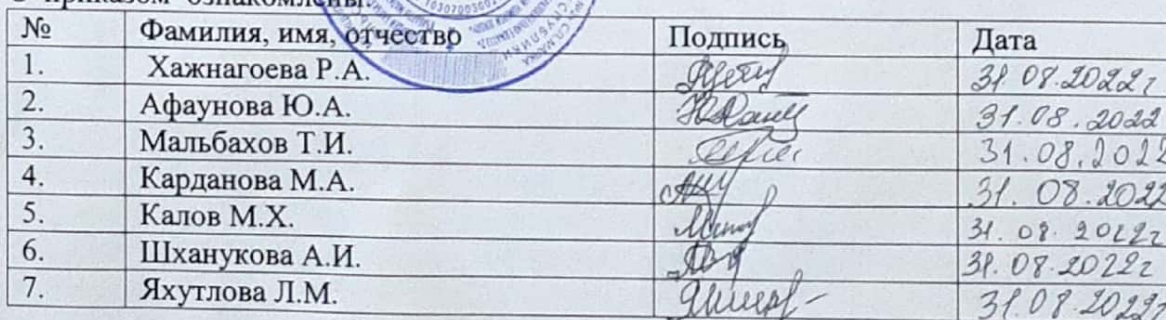 С приказом ознакомлены:
№ Фамилия, имя, отчество Подпись Дата
1. Хажнагоева Р.А. 31.08.2022г
2. Афаунова Ю.А. 31.08.2022
3. Мальбахов Т.И. 31.08.2022
4. Карданова М.А. 31.08.2022
5. Калов М.Х. 31.08.2022г
6. Шханукова А.И. 31.08.2022г
7. Яхутлова Л.М. 31.08.2022г